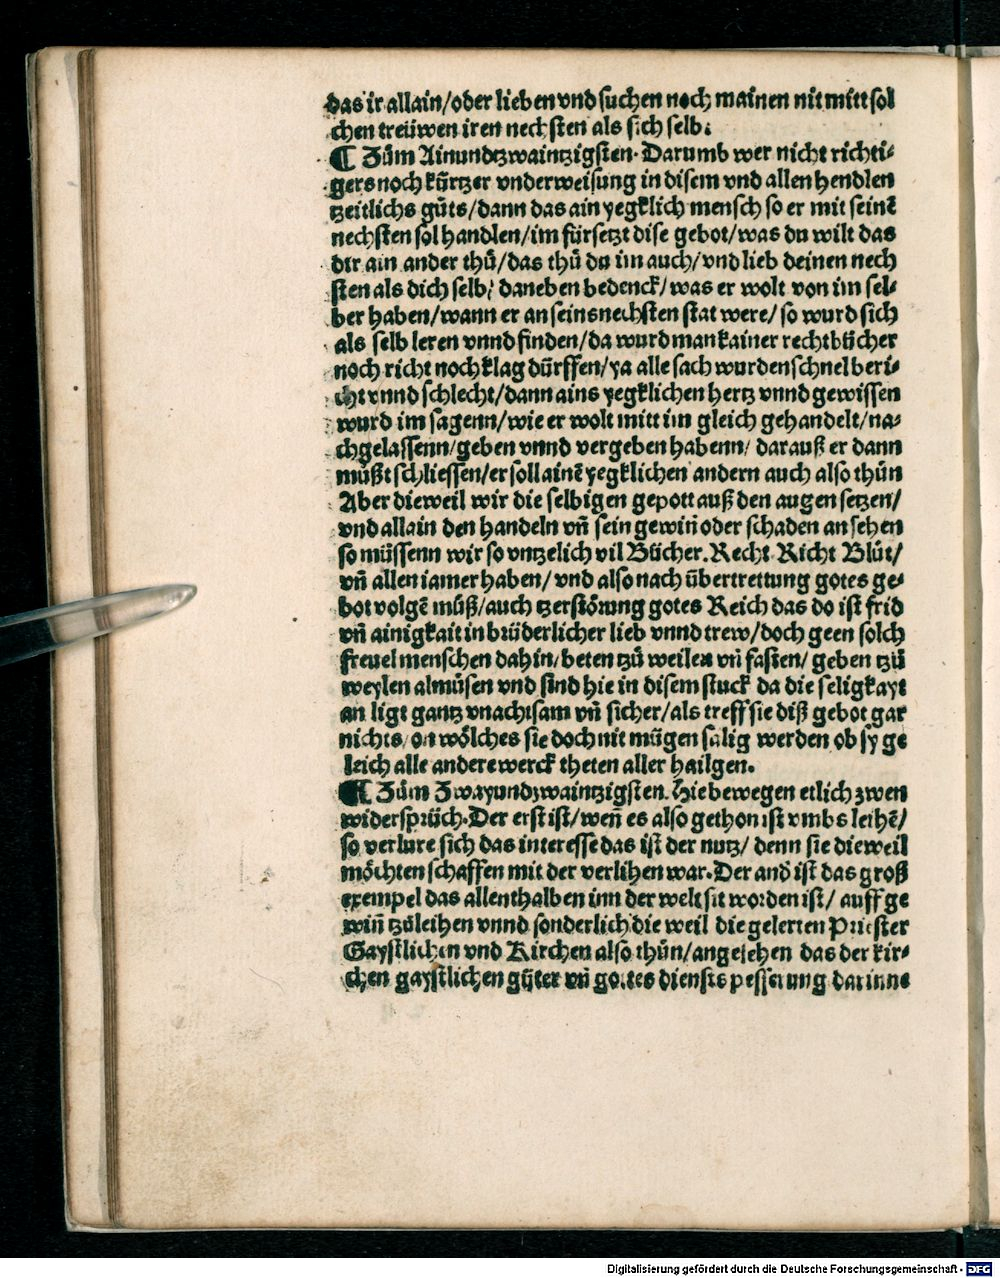 das ir allain/oder lieben vnd suchen noch mainen nit mitt sol
chen treüwen iren nechsten als sich selb.
¶ Zům Ainundtzwaintzigsten. Darumb wer nicht richti-
gers noch kürtzer vnderweisung in disem vnd allen hendlen
tzeitlichs gůts/dann das ain yegklich mensch so er mit seinē
nechsten sol handlen/im fürsetzt dise gebot/was du wilt das
dir ain ander thů/das thů du im auch/vnd lieb deinen nech
sten als dich selb/ daneben bedenck/was er wolt von im sel-
ber haben/wann er an seins nechsten stat were/ so wurd sich
als selb leren vnnd finden/da wurd man kainer rechtbücher
noch richt noch klag dürffen/ya alle sach wurden schnel beri-
cht vnnd schlecht/dann ains yegklichen hertz vnnd gewissen
wurd im sagenn/wie er wolt mitt im gleich gehandelt/na-
chgelassenn/geben vnnd vergeben habenn/ darauß er dann
müßt schliessen/er soll ainē yegklichen andern auch also thůn
Aber dieweil wir die selbigen gepott auß den augen setzen/
vnd allain den handeln vn̄ sein gewin̄ oder schaden ansehen
so müssenn wir so vntzelich vil Bücher. Recht Richt Blůt/
vn̄ allen iamer haben/ vnd also nach übertrettung gotes ge-
bot volgē můß/auch tzerstörung gotes Reich das do ist frid
vn̄ ainigkait in brüderlicher lieb vnnd trew/doch geen solch
freuel menschen dahin/beten tzů weilen vn̄ fasten/ geben tzů
weylen almůsen vnd sind hie in disem stuck da die seligkayt
an ligt gantz vnachtsam vn̄ sicher/als treff sie diß gebot gar
nichts/on wölches sie doch nit mügen salig werden ob sy ge
leich alle andere werck theten aller hailgen.
¶ Zům Zwayundzwaintzigsten. Hie bewegen etlich zwen
widersprüch. Der erst ist/wen̄ es also gethon ist vmbs leihē/
so verlure sich das interesse das ist der nutz/ denn sie dieweil
möchten schaffen mit der verlihen war. Der and̄ ist das groß
exempel das allenthalben inn der welt sit worden ist/ auff ge
win̄ tzůleihen vnnd sonderlich die weil die gelerten Priester
Gaystlichen vnd Kirchen also thůn/angesehen das der kir-
chen gaystlichen güter vn̄ gottes diensts pesserung darinne
Digitalisierung gefördert durch die Deutsche Forschungsgemeinschaft - DFG